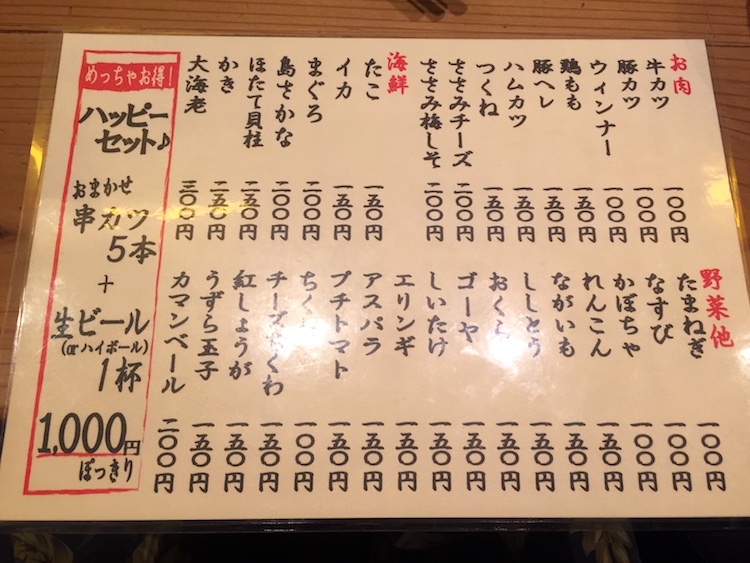 お肉
牛カツ 一〇〇円
豚カツ 一〇〇円
ウィンナー 一〇〇円
鶏もも 一五〇円
豚ヘレ 一五〇円
ハムカツ 一五〇円
つくね 一五〇円
ささみチーズ 二〇〇円
ささみ梅しそ 二〇〇円
海鮮
たこ 一五〇円
イカ 一五〇円
まぐろ 二〇〇円
島さかな 二〇〇円
ほたて貝柱 二五〇円
かき 二五〇円
大海老 三〇〇円
野菜他
たまねぎ 一〇〇円
なすび 一〇〇円
かぼちゃ 一〇〇円
れんこん 一五〇円
ながいも 一五〇円
ししとう 一五〇円
おくら 一五〇円
ゴーヤ 一五〇円
しいたけ 一五〇円
エリンギ 一五〇円
アスパラ 一五〇円
プチトマト 一五〇円
ちくわ 一〇〇円
チーズちくわ 一五〇円
紅しょうが 一五〇円
うずら玉子 一五〇円
カマンベール 二〇〇円
めっちゃお得!
ハッピー
セット♪
おまかせ
串カツ
5本
+
生ビール
(orハイボール)
1杯
1,000円
ぽっきり